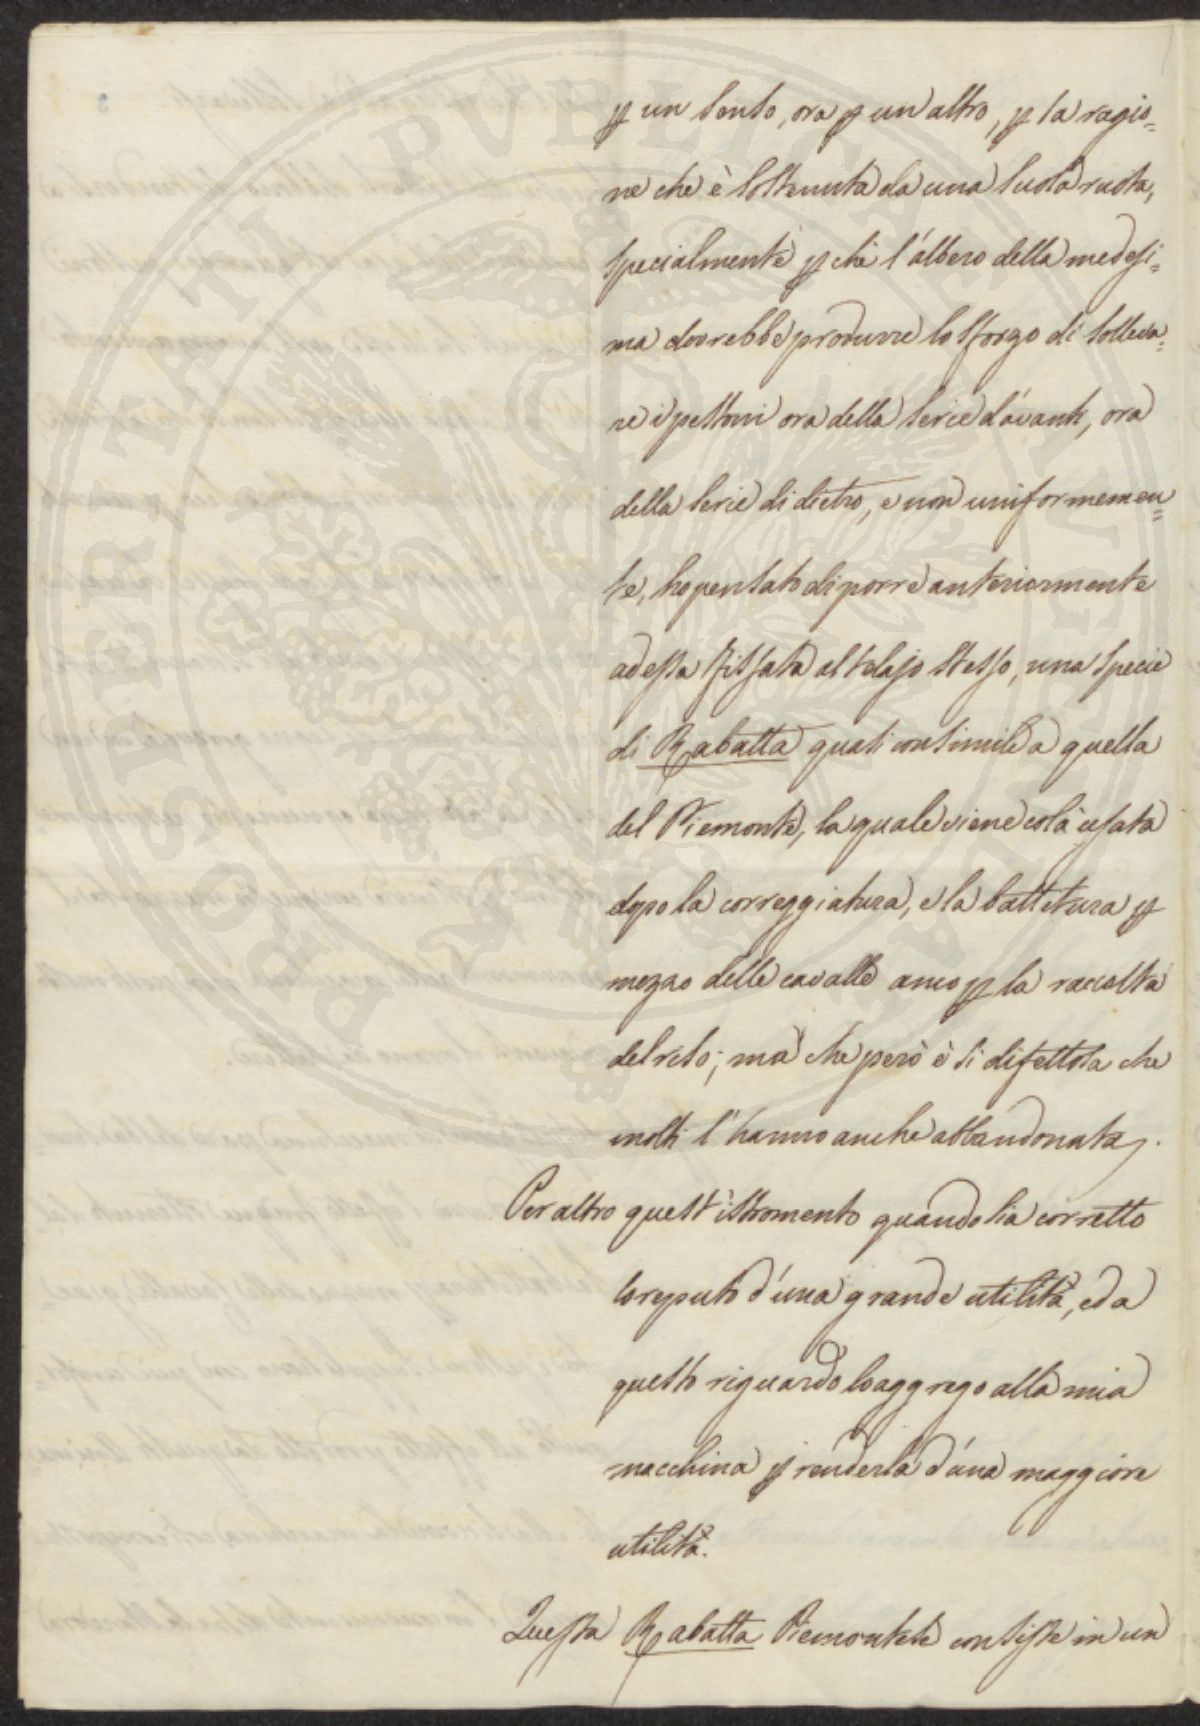 p un senso, ora p un altro, p la ragio=
ne che è sostenuta da una suola ruota,
specialmente p chè l'albero della medesi=
ma dovrebbe produrre lo sforzo di solleva=
re i pestoni ora della serie d'avanti, ora
della serie di dietro, e non uniformemen=
te, ho pensato di porre anteriormente
ad essa fissata al telajo stesso, una specie
di Rabatta quasi consimile a quella
del Piemonte, la quale viene colà usata
dopo la correggiatura, e la battitura p
mezzo delle cavalle anco p la raccolta
del riso; ma che però è sì difettosa che
molti l'hanno anche abbandonata.
Per altro quest'istromento quando sia corretto
lo reputo d'una grande utilità, ed a
questo riguardo lo aggrego alla mia
macchina p renderla d'una maggiore
utilità.
Questa Rabatta Piemontese consiste in un
PROSPERITATI PVBLICAE AVGENDAE